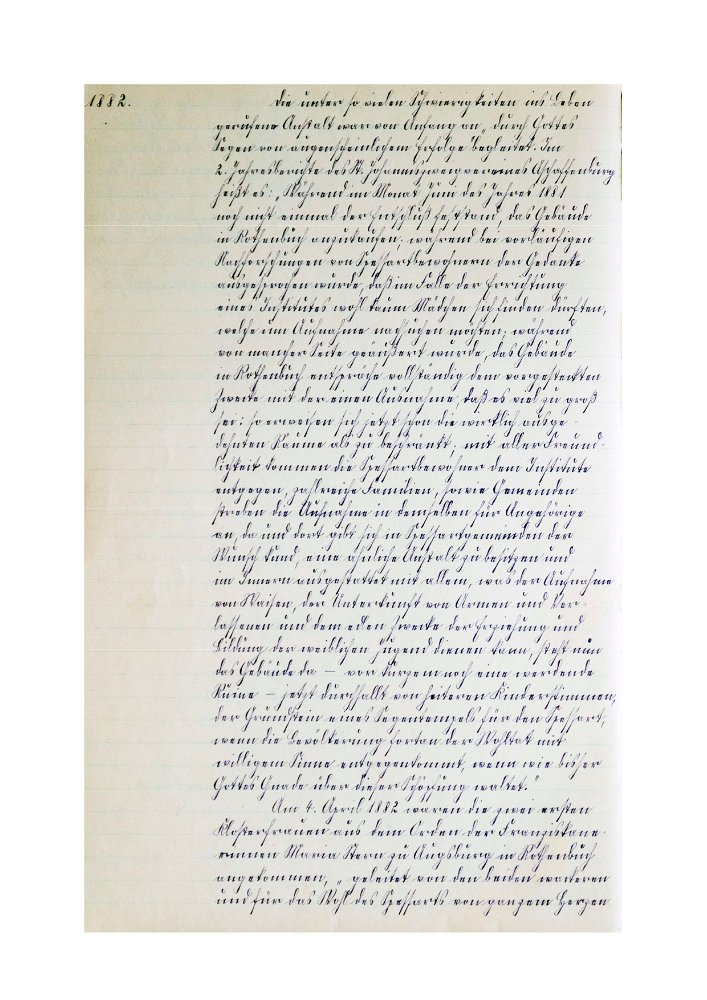 1882.
Die unter so vielen Schwierigkeiten ins Leben
gerufene Anstalt war von Anfang an „durch Gottes
Segen von augenscheinlichem Erfolge begleitet. Im
2. Jahresberichte des St. Johanniszweigvereines Aschaffenburg
heißt es: „Während im Monat Juni des Jahres 1881
noch nicht einmal der Entschluß feststand, das Gebäude
in Rothenbuch anzukaufen; während bei vorläufigen
Nachforschungen von Spessartbewohnern der Gedanke
ausgesprochen wurde, daß im Falle der Errichtung
eines Institutes wohl kaum Mädchen sich finden dürften,
welche um Aufnahme nachsuchen möchten; während
von mancher Seite geäußert wurde, das Gebäude
in Rothenbuch entspräche vollständig dem vorgesteckten
Zwecke mit der einen Ausnahme, daß es viel zu groß
sei: so erweisen sich jetzt schon die wirklich ausge-
dehnten Räume als zu beschränkt; mit aller Freund-
lichkeit kommen die Spessartbewohner dem Institute
entgegen, zahlreiche Familien, sowie Gemeinden
streben die Aufnahme in demselben für Angehörige
an, da und dort gibt sich in Spessartgemeinden der
Wunsch kund, eine ähnliche Anstalt zu besitzen und
im Innern ausgestattet mit allem, was der Aufnahme
von Waisen, der Unterkunft von Armen und Ver-
lassenen und dem edlen Zwecke der Erziehung und
Bildung der weiblichen Jugend dienen kann, steht nun
das Gebäude da – vor kurzem noch eine werdende
Ruine – jetzt durchhallt von heiteren Kinderstimmen,
der Grundstein eines Segentempels für den Spessart,
wenn die Bevölkerung fortan der Wohltat mit
willigem Sinne entgegenkommt, wenn wie bisher
Gottes Gnade über dieser Schöpfung waltet.“
Am 4. April 1882 waren die zwei ersten
Klosterfrauen aus dem Orden der Franziskane-
rinnen Maria Stern zu Augsburg in Rothenbuch
angekommen, „geleitet von den beiden wackeren
und für das Wohl des Spessarts von ganzem Herzen